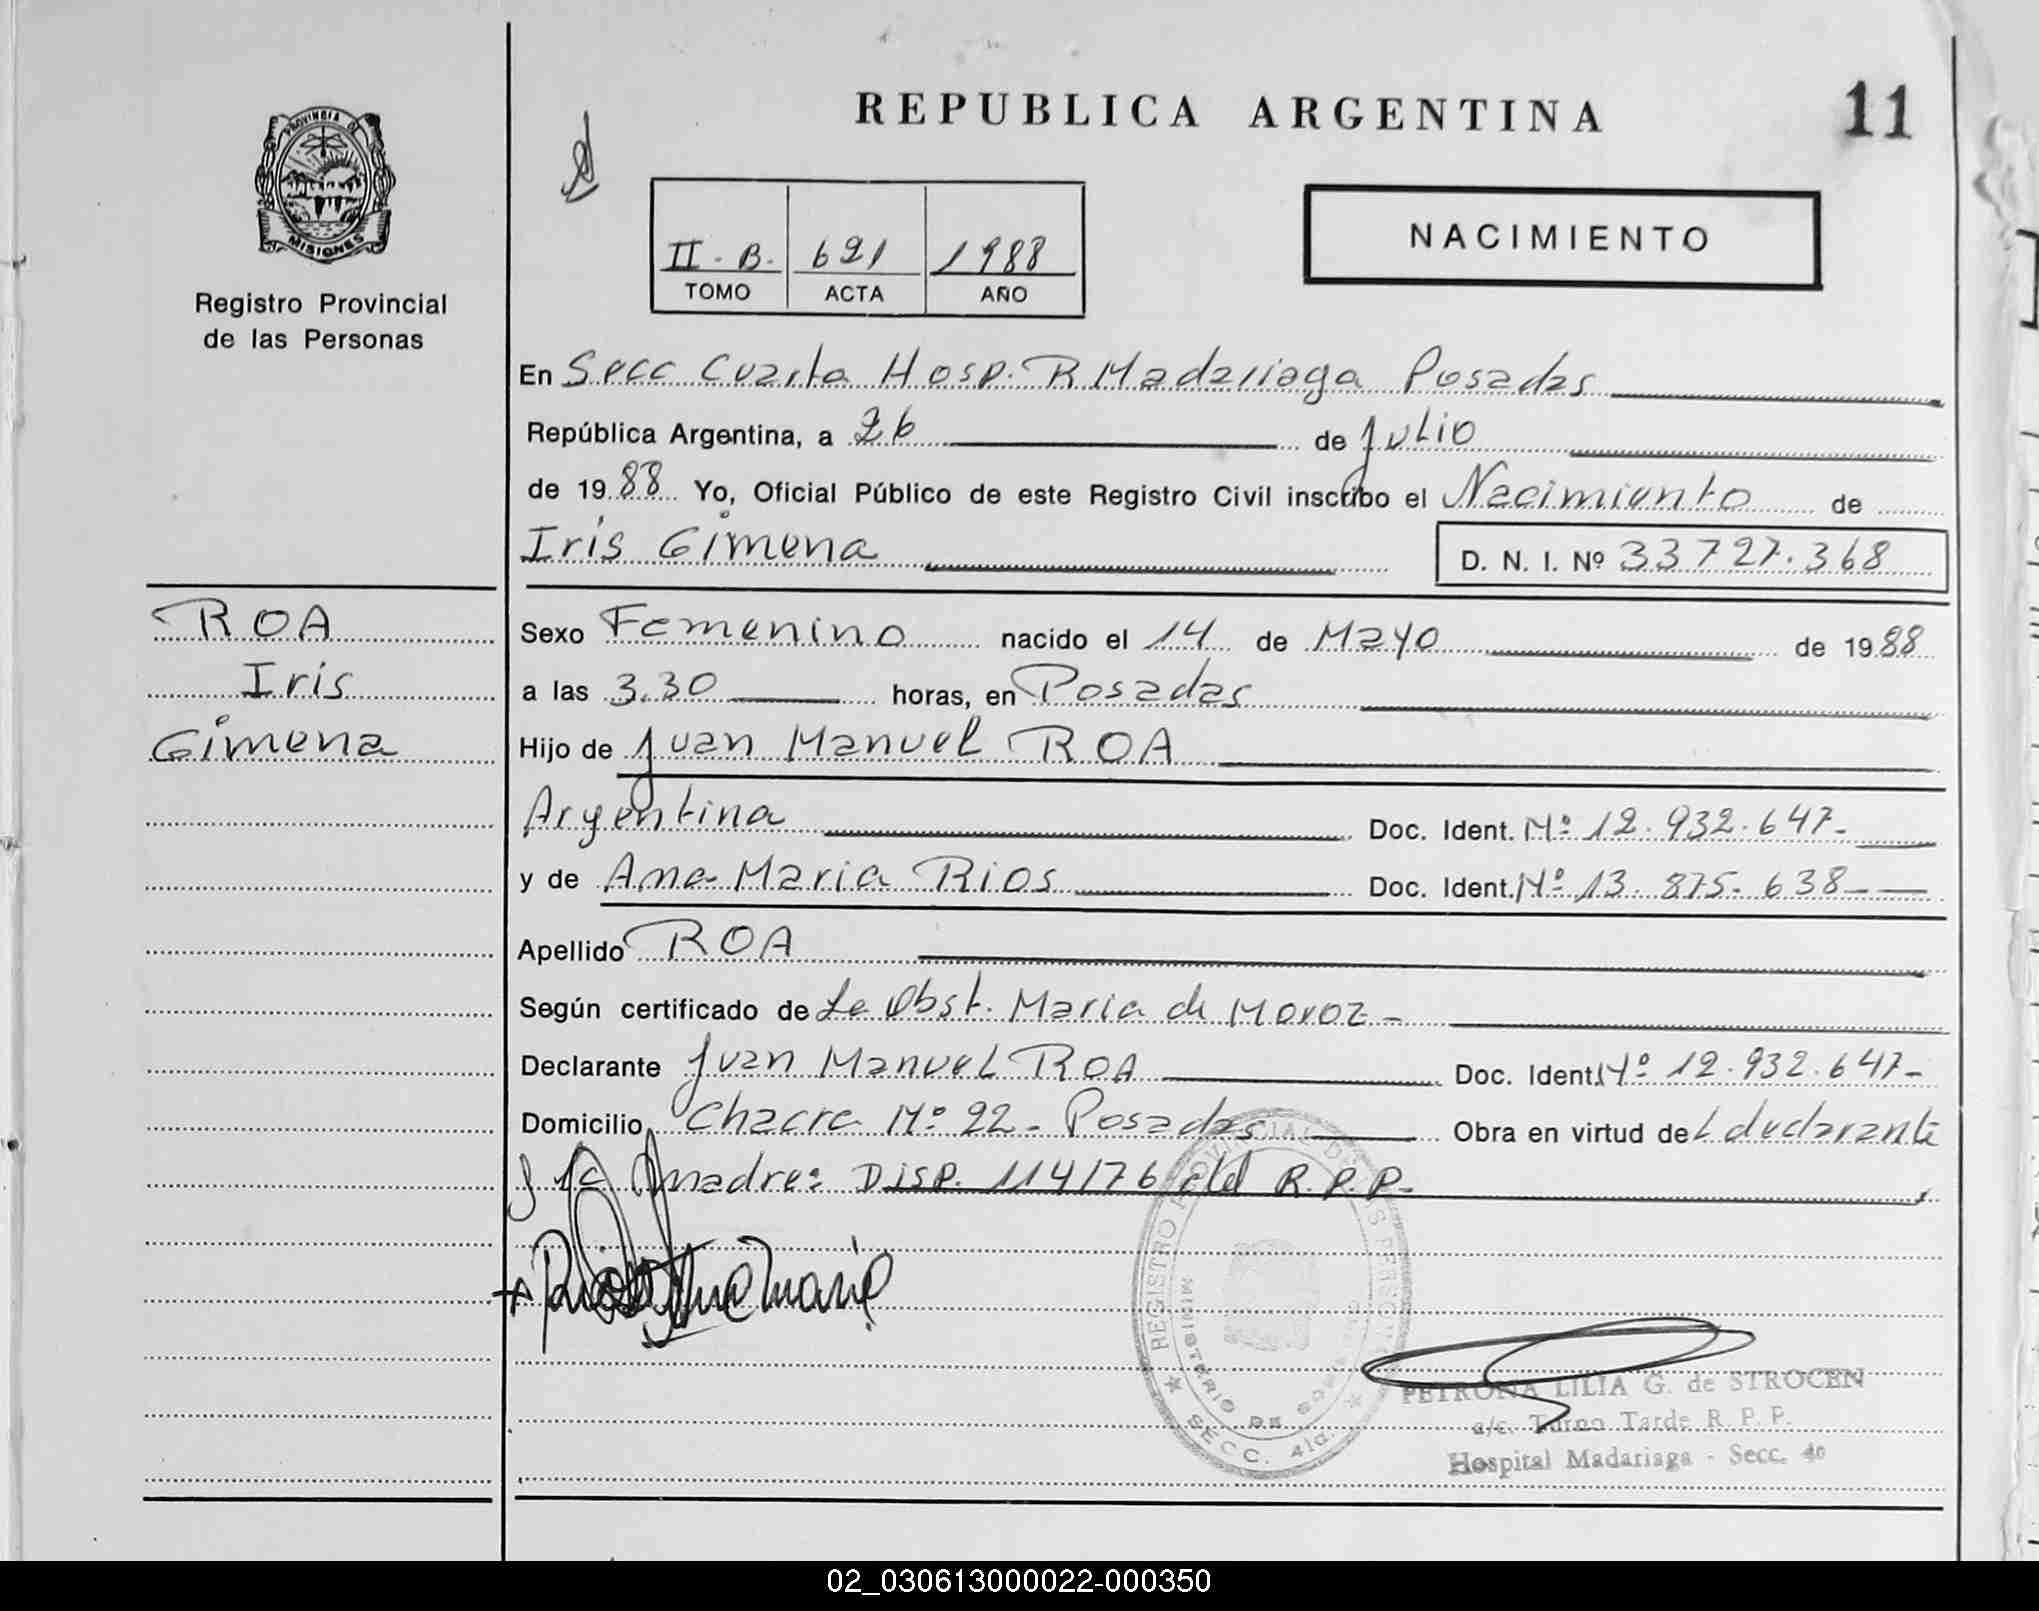 REPUBLICA ARGENTINA
11
PROVINCIA DE
MISIONES
Registro Provincial
de las Personas
II - B. 621 1988
TOMO ACTA AÑO
NACIMIENTO
En Secc Cuarta Hosp. R Madariaga Posadas
República Argentina, a 26 de Julio
de 1988 Yo, Oficial Público de este Registro Civil inscribo el Nacimiento de
Iris Gimena
D. N. I. Nº 33727.368
ROA
Iris
Gimena
Sexo Femenino nacido el 14 de Mayo de 1988
a las 3.30 horas, en Posadas
Hijo de Juan Manuel ROA
Argentina Doc. Ident. Nº 12.932.647-
y de Ana Maria Rios Doc. Ident. Nº 13.875.638-
Apellido ROA
Según certificado de La Obst. Maria de Moroz -
Declarante Juan Manuel ROA Doc. Ident. Nº 12.932.647-
Domicilio Chacra Nº 22 - Posadas Obra en virtud de L declarante
y la madre: Disp. 114/76 del R.P.P.
+ Rios Ana Maria
REGISTRO PROVINCIAL DE LAS PERSONAS
MINISTERIO DE GOBIERNO
SECC. 4ta.
PETRONA LILIA G. de STROCEN
a/c. Turno Tarde R. P. P.
Hospital Madariaga - Secc. 4a
02_030613000022-000350